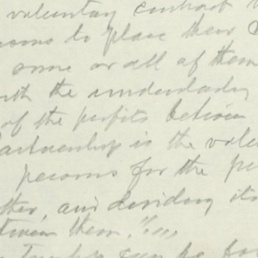 voluntary contract
to place their
some or all of them
the understanding
of the profits between
Partnership is the
persons for the
and dividing
between them.